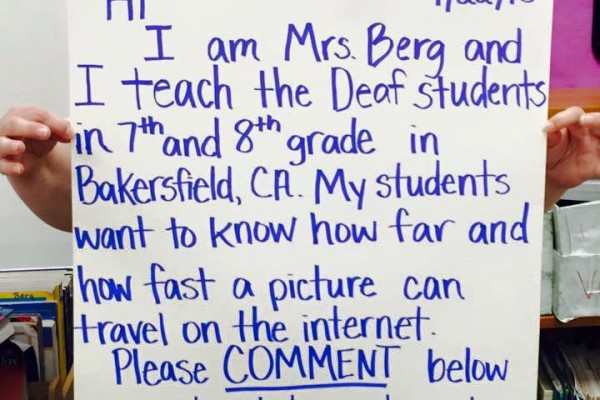 Hi
I am Mrs. Berg and
I teach the Deaf students
in 7th and 8th grade in
Bakersfield, CA. My students
want to know how far and
how fast a picture can
travel on the internet.
Please COMMENT below